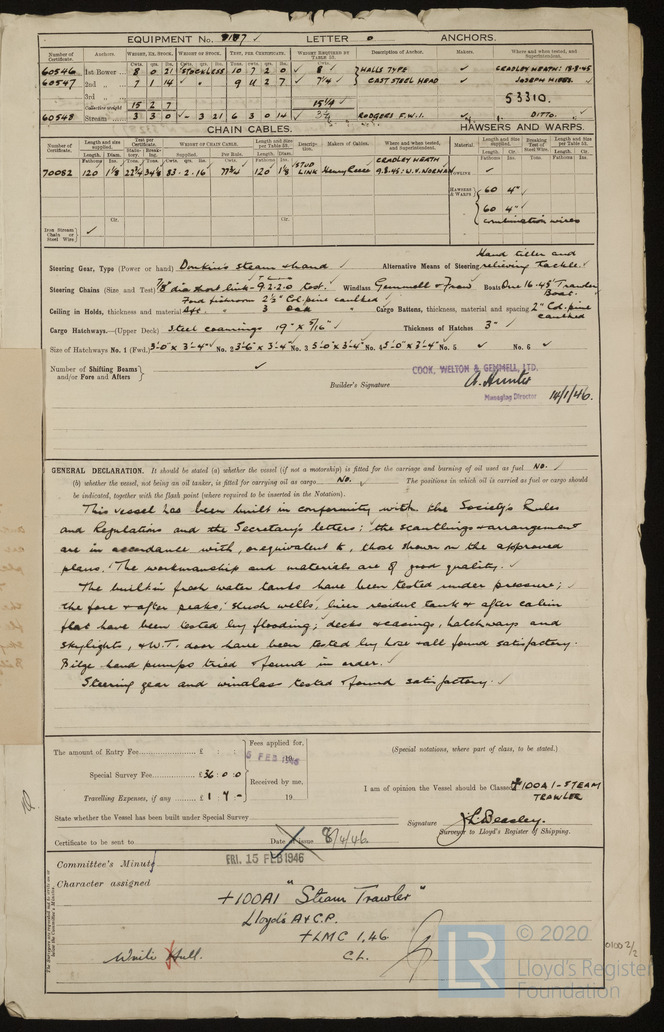 EQUIPMENT No. 9187 ✓ LETTER o ANCHORS.
Number of Certificate. Anchors. WEIGHT, EX. STOCK. WEIGHT OF STOCK. TEST, PER CERTIFICATE. WEIGHT REQUIRED BY TABLE 53. Description of Anchor. Makers. Where and when tested, and Superintendent.
60546 1st Bower 8 0 21 STOCKLESS 10 7 2 0 ✓ 8 ✓ HALLS TYPE ✓ CRADLEY HEATH: 13-8-45
60547 2nd „ 7 1 14 ✓ 9 11 2 7 ✓ 7¼ ✓ CAST STEEL HEAD ✓ JOSEPH HIBBS.
3rd „ 53310.
Collective weight 15 2 7 15¼ ✓
60548 Stream 3 3 0 ✓ - 3 21 6 3 0 14 RODGERS F.W.I. DITTO.
CHAIN CABLES. HAWSERS AND WARPS.
Number of Certificate. Length and size supplied. Test per Certificate. WEIGHT OF CHAIN CABLE. Length and size per Table 53. Description. Makers of Cables. Where and when tested, and Superintendent. Material. Length and size supplied. Breaking Test of Steel Wire. Length and Size per Table 53.
70082 120 1⅛ 22¾ 34⅛ 83-2-16 77¾ 120 1⅛ STUD LINK Henry Reece CRADLEY HEATH 9.8.45: W.V. NORMAN
HAWSERS & WARPS 60 4"
60 4"
combination wires
Iron Stream Chain or Steel Wire ✓
Steering Gear, Type (Power or hand) Donkin's steam & hand ✓ Alternative Means of Steering Hand tiller and relieving tackle. ✓
Steering Chains (Size and Test) 7/8 dia short link - 9.2.2.0 test. Windlass Gemmell & Frow ✓ Boats One 16-45' Trawler Boat.
Ceiling in Holds, thickness and material Ford fishroom 2½" Col. pine caulked Aft „ 3 oak „ Cargo Battens, thickness, material and spacing 2" Col. pine caulked
Cargo Hatchways.—(Upper Deck) steel coamings 19" x 5/16" ✓ Thickness of Hatches 3" ✓
Size of Hatchways No. 1 (Fwd.) 3'-0" x 3'-4" ✓ No. 2 3'-6" x 3'-4" ✓ No. 3 5'-0" x 3'-4" ✓ No. 4 3'-0" x 3'-4" ✓ No. 5 ✓ No. 6 ✓
Number of Shifting Beams and/or Fore and Afters ✓
COOK, WELTON & GEMMELL, LTD.
Builder's Signature A. Hunter 14/1/46.
Managing Director
GENERAL DECLARATION. It should be stated (a) whether the vessel (if not a motorship) is fitted for the carriage and burning of oil used as fuel NO. ✓
(b) whether the vessel, not being an oil tanker, is fitted for carrying oil as cargo NO. ✓ The positions in which oil is carried as fuel or cargo should
be indicated, together with the flash point (where required to be inserted in the Notation).
This vessel has been built in conformity with the Society's Rules
and Regulations and the Secretary's letters; the scantlings & arrangement
are in accordance with, or equivalent to, those shown on the approved
plans. The workmanship and materials are of good quality. ✓
The built in fresh water tanks have been tested under pressure; ✓
the fore & after peaks, slush wells, liver residue tank & after cabin
flat have been tested by flooding; decks & casings, hatchways and
skylights, & W.T. door have been tested by hose & all found satisfactory.
Bilge hand pumps tried & found in order. ✓
Steering gear and windlass tested & found satisfactory. ✓
The amount of Entry Fee £ Fees applied for, 6 FEB 1946 (Special notations, where part of class, to be stated.)
Special Survey Fee £36:0:0 Received by me,
Travelling Expenses, if any £1 9 - 19 I am of opinion the Vessel should be Classed ✠100A1-STEAM TRAWLER
State whether the Vessel has been built under Special Survey
Signature J.L. Beasley.
Surveyor to Lloyd's Register of Shipping.
Certificate to be sent to Date of issue 8/4/46.
Committee's Minute FRI. 15 FEB 1946
Character assigned
+100A1 "Steam Trawler"
Lloyd's A & C.P.
+LMC 1.46
C.L.
Write Hull.
LR © 2020
Lloyd's Register
Foundation
0100 2/2